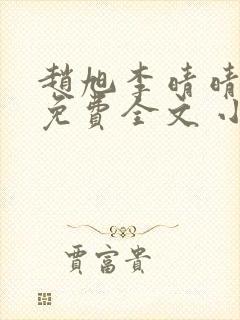 趙旭李晴晴
免費全文小
賈富貴